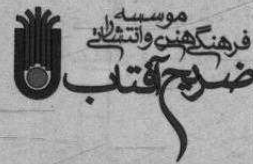 موسسه
فرهنگی هنری و انتشاراتی
ضریح آفتاب